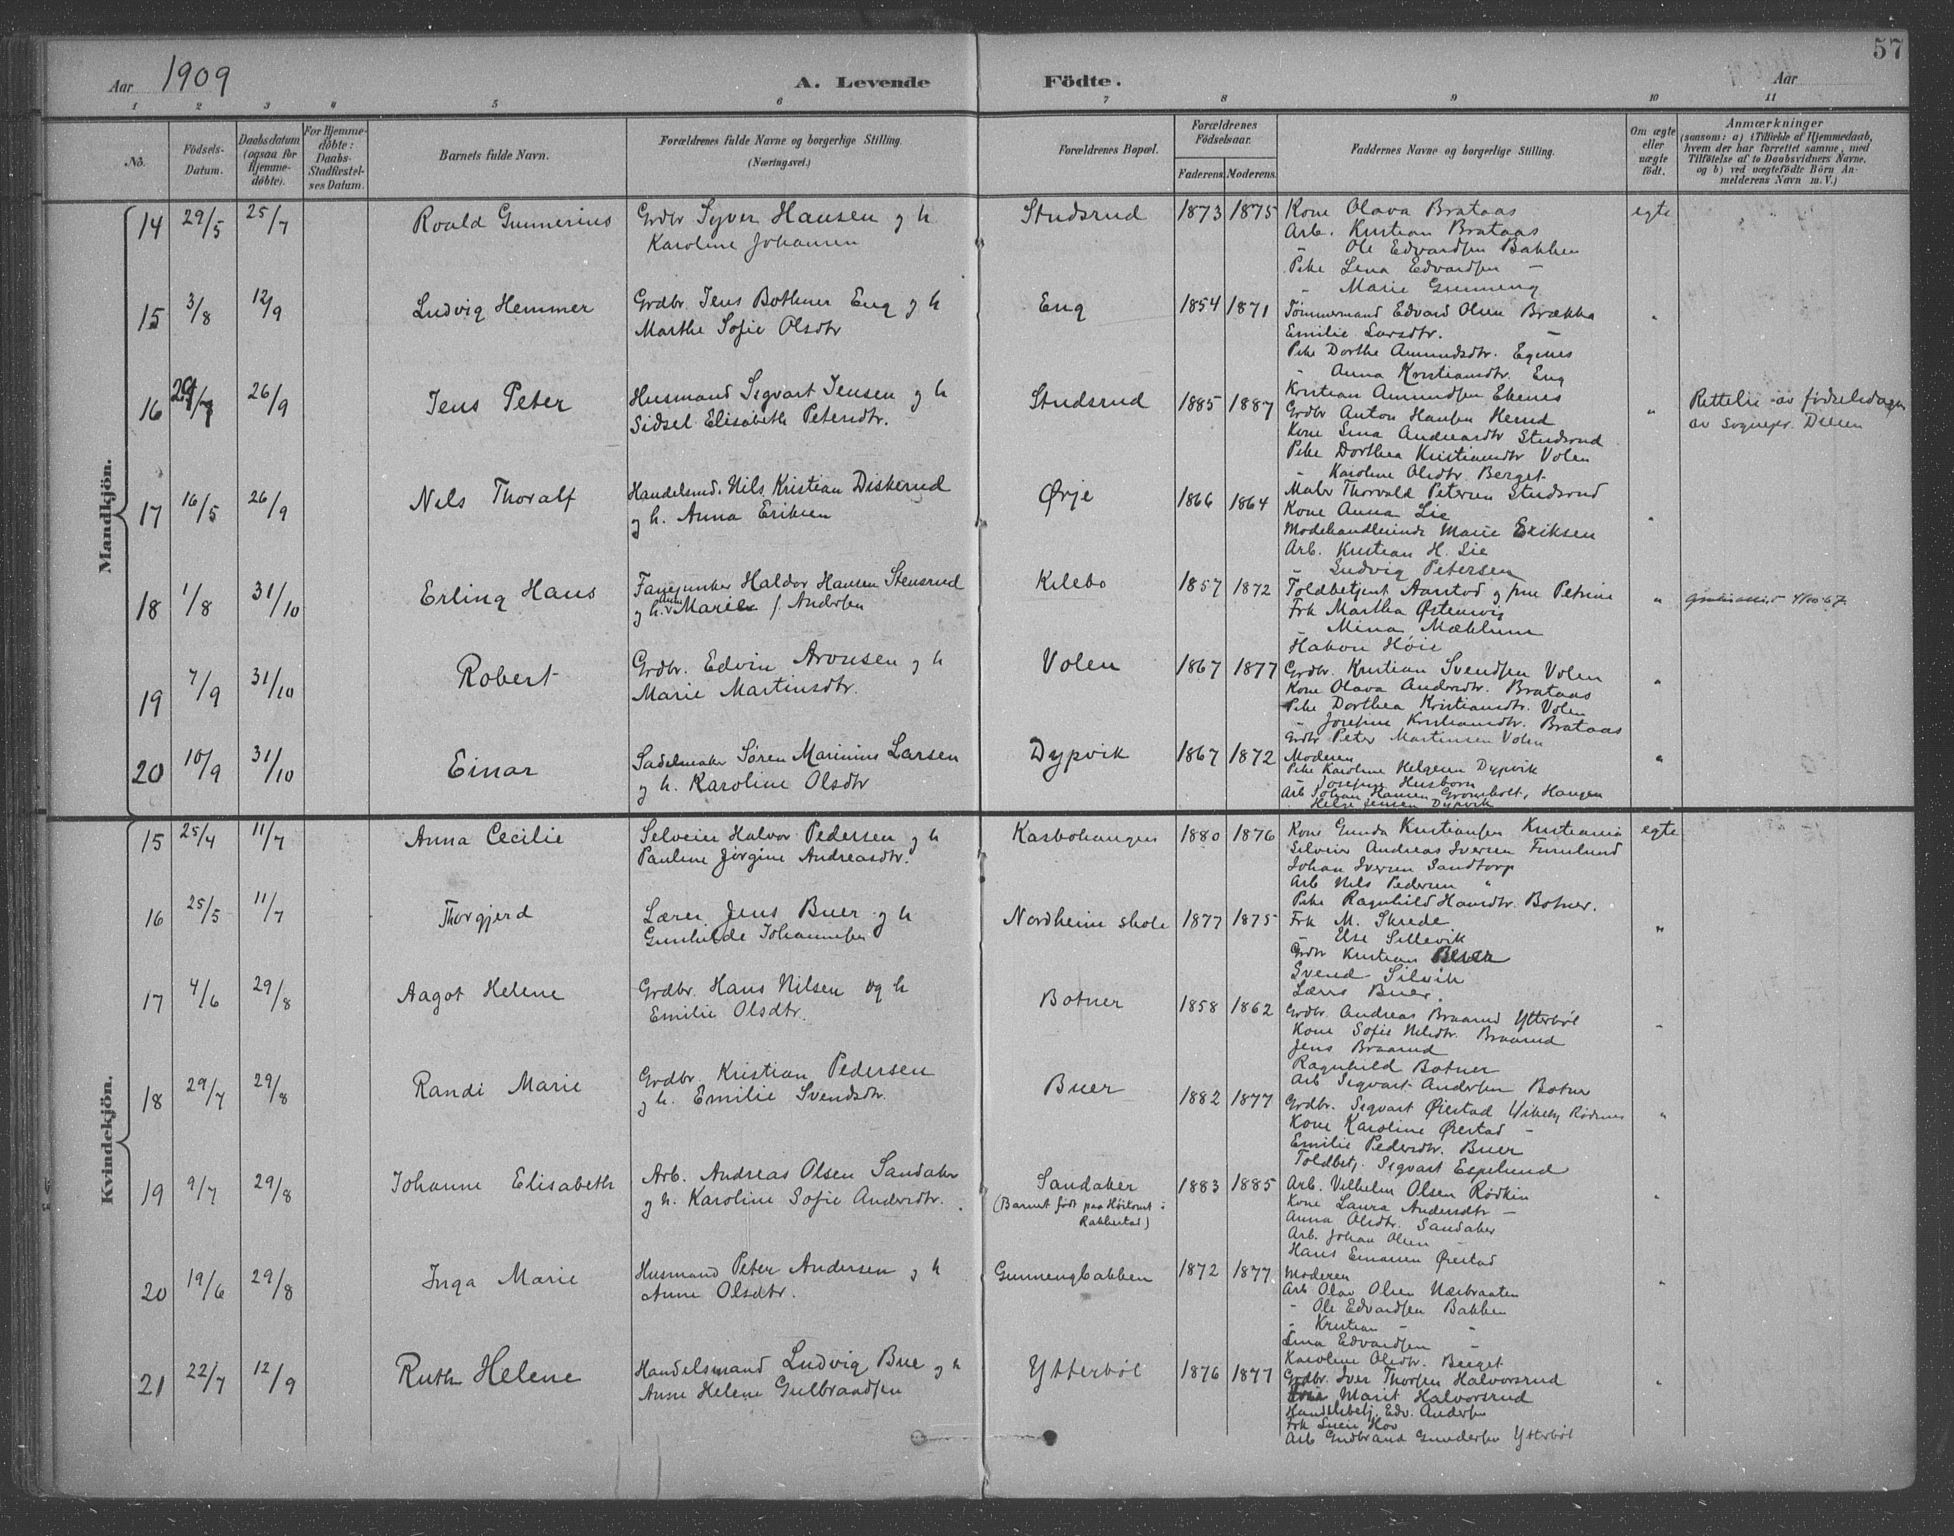 57
Aar 1909 A. Levende Födte. Aar
1 2 3 4 5 6 7 8 9 10 11
No.
Födsels-Datum.
Daabsdatum (ogsaa for Hjemmedöbte).
For Hjemmedöbte: Daabs-Stadfæstelses Datum.
Barnets fulde Navn.
Forældrenes fulde Navne og borgerlige Stilling. (Næringsvei.)
Forældrenes Bopæl.
Forældrenes Födselsaar.
Faderens. Moderens.
Faddernes Navne og borgerlige Stilling.
Om ægte eller uægte födt.
Anmærkninger
(saasom: a) i Tilfælde af Hjemmedaab,
hvem der har forrettet samme, med
Tilföielse af to Daabsvidners Navne,
og b) ved uægtefödte Börn An-
melderens Navn m. V.)
Mandkjön.
14 29/5 25/7 Roald Gunnerius Grdbr Syver Hansen og h Studsrud 1873 1875 Kone Olava Brataas egte
Karoline Johansen Arb. Kristian Brataas
" Ole Edvardsen Bakken
Pike Lena Edvardsen —
" Marie Gunneng
15 3/8 12/9 Ludvig Hemmer Grdbr. Jens Bothner Eng og h Eng 1854 1871 Tømmermand Edvard Olsen Brække "
Marthe Sofie Olsdtr Emilie Larsdtr. —
Pike Dorthe Amundsdtr. Egenes
" Anna Kristiansdtr. Eng
16 26/9 Jens Peter Husmand Sigvart Jensen og h Studsrud 1885 1887 Kristian Amundsen Ekenes " Rettelse av fødselsdagen
Sidsel Elisabeth Petersdtr. Grdbr Anton Hansen Hemd av sognepr.
Kone Lina Andreasdtr Studsrud
Pike Dorthea Kristiansdtr Volen
" Karoline Olsdtr. Berget
17 16/5 26/9 Nils Thoralf Handelsmd. Nils Kristian Diskerud Ørje 1866 1864 Maler Thorvald Petersen Studsrud "
og h. Anna Eriksen Kone Anna Lie
Modehandlerinde Marie Eriksen
Arb. Kristian H. Lie
" Ludvig Petersen
18 1/8 31/10 Erling Hans Fanejunker Haldor Hansen Stensrud Kilebo 1857 1872 Toldbetjent Aarstad og frue Petrine "
og h. Marie f. Andersen Frk Martha Østensvig
" Mina Mæhlum
Hakon Høie
19 7/9 31/10 Robert Grdbr. Edvin Aronsen og h Volen 1867 1877 Grdbr. Kristian Svendsen Volen "
Marie Martinsdtr. Kone Olava Andersdtr. Brataas
Pike Dorthea Kristiansdtr. Volen
" Josefine Kristiansdtr. Brataas
Grdbr Peter Martinsen Volen
20 10/9 31/10 Einar Sadelmaker Søren Marinius Larsen Dypvik 1867 1872 Moderen "
og h. Karoline Olsdtr Pike Karoline Helgesen Dypvik
" Josefine Husborn
Arb Johan Hansen Gromholt, Haugen
Helge Jensen Dypvik
Kvindekjön.
15 25/4 11/7 Anna Cecilie Selveier Halvor Pedersen og h Kasbohaugen 1880 1876 Kone Gunda Kristiansen Kristiania egte
Pauline Jørgine Andreasdtr. Selveier Andreas Iversen Furulund
Johan Iversen Sandtorp
Arb Nils Pedersen "
Pike Ragnhild Hansdtr. Botner.
16 25/5 11/7 Thorgjerd Lærer Jens Buer og h Nordheim skole 1877 1875 Frk M. Skrede "
Gunhilde Johannesen " Else Sillevik
Grdbr Kristian Buer
Svend Silvik
Lars Buer.
17 4/6 29/8 Aagot Helene Grdbr. Hans Nilsen og h Botner 1858 1862 Grdbr. Andreas Braarud Ytterbøl "
Emilie Olsdtr. Kone Sofie Nilsdtr. Braarud
Jens Braarud
Ragnhild Botner
Arb Sigvart Andersen Botner
18 29/7 29/8 Randi Marie Grdbr. Kristian Pedersen Buer 1882 1877 Grdbr. Sigvart Ørestad Rødenes "
og h. Emilie Svendsdtr. Kone Karoline Ørestad —
Emilie Pedersdtr. Buer
Toldbetj. Sigvart Espelund
19 9/7 29/8 Johanne Elisabeth Arb. Andreas Olsen Sandaker Sandaker 1883 1885 Arb. Vilhelm Olsen Rødkin "
og h. Karoline Sofie Andersdtr. (Barnet født paa Høitomt i Rakkestad) Kone Laura Andersdtr —
Anna Olsdtr. Sandaker
Arb. Johan Olsen —
Hans Emanuel Ørestad
20 19/6 29/8 Inga Marie Husmand Peter Andersen og h Gunnengbakken 1872 1877. Moderen "
Anne Olsdtr. Arb Olav Olsen Nærbraaten
" Ole Edvardsen Bakken
" Kristian " "
Lina Edvardsen "
Karoline Olsdtr. Berget
21 22/7 12/9 Ruth Helene Handelsmand Ludvig Bue og h Ytterbøl 1876 1877 Grdbr. Iver Thorsen Halvorsrud "
Anne Helene Gulbrandsen Marit Halvorsrud
Handelsbetj. Edv. Andersen
Frk Hov
Arb Gudbrand Gundersen Ytterbøl